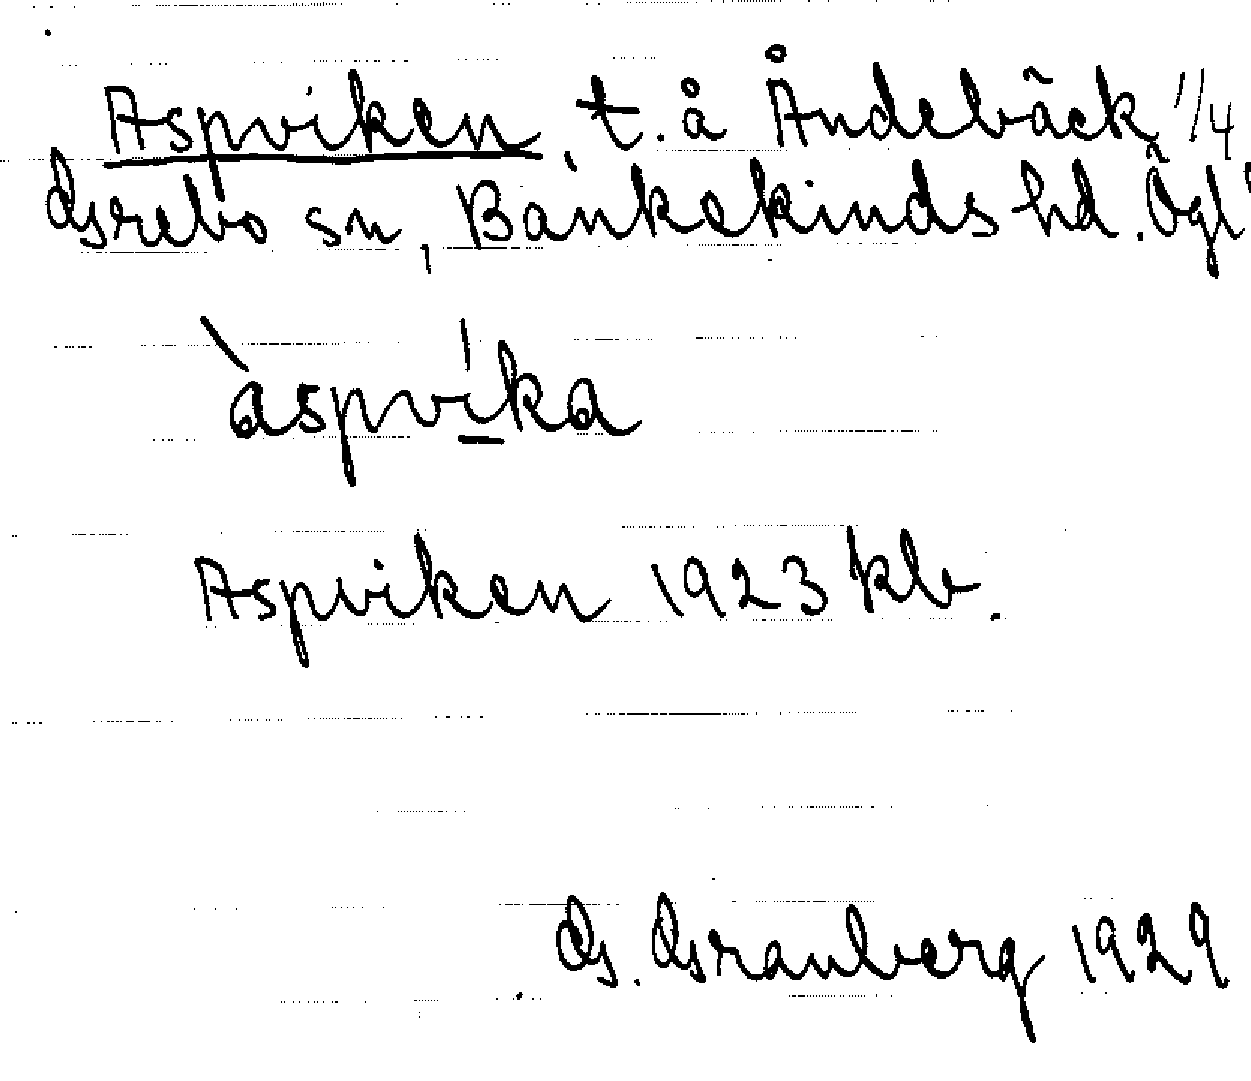 Aspviken, t. å Åndebäck 1/4
Grebo sn, Bankekinds hd. Ögl
àspvíka
Aspviken 1923 kb.
G. Granberg 1929